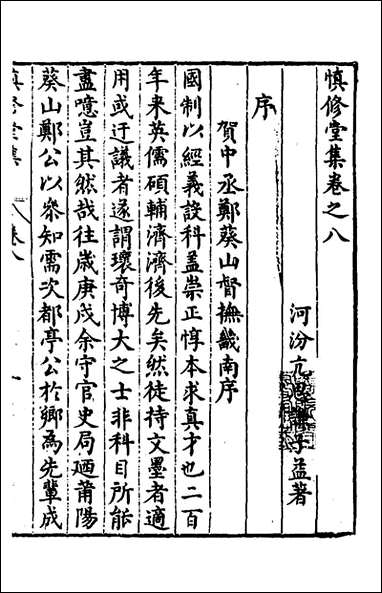 慎修堂集卷之八
河汾亢思謙子益著
序
賀中丞鄭葵山督撫畿南序
國制以經義設科盖崇正惇本求真才也二百
年来英儒碩輔濟濟後先矣然徒待文墨者適
用或迂議者遂謂瓌奇博大之士非科目所能
盡噫豈其然哉往歲庚戌余守官史局廼莆陽
葵山鄭公以叅知需次都亭公於鄉為先輩成
慎修堂集
卷八
一